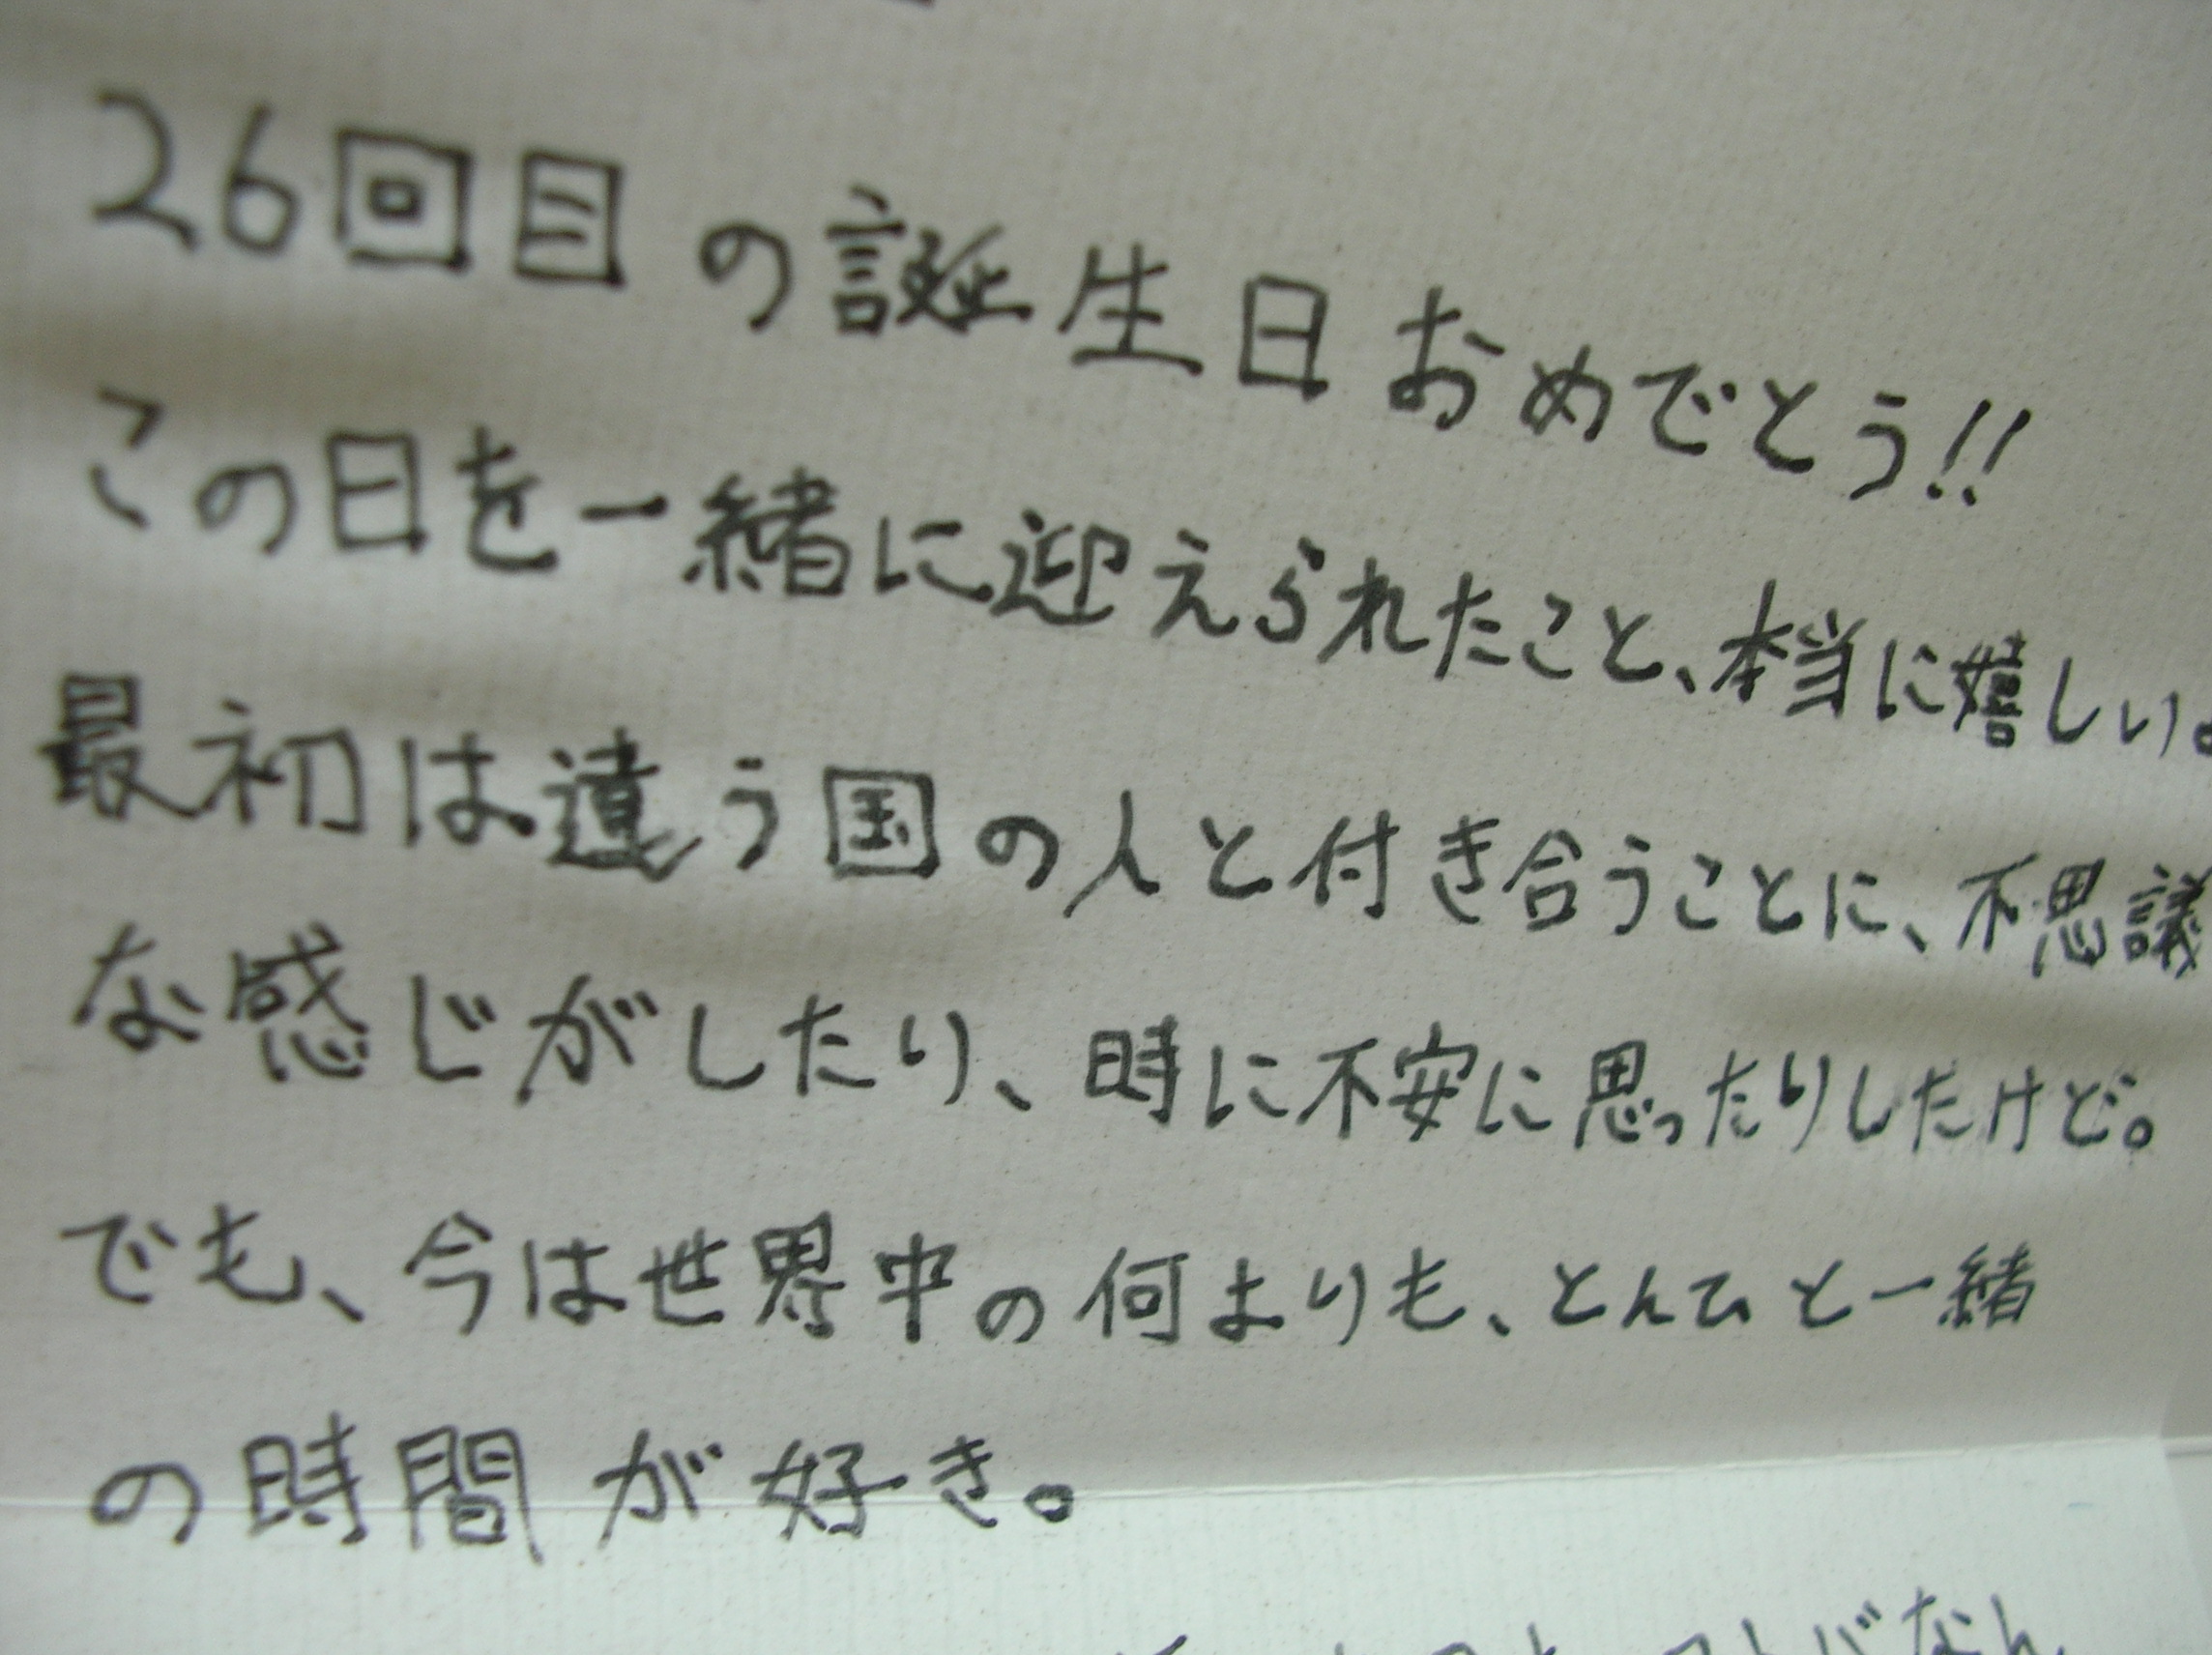 26回目の誕生日おめでとう!!
この日を一緒に迎えられたこと、本当に嬉しい。
最初は違う国の人と付き合うことに、不思議
な感じがしたり、時に不安に思ったりしたけど。
でも、今は世界中の何よりも、とんひと一緒
の時間が好き。